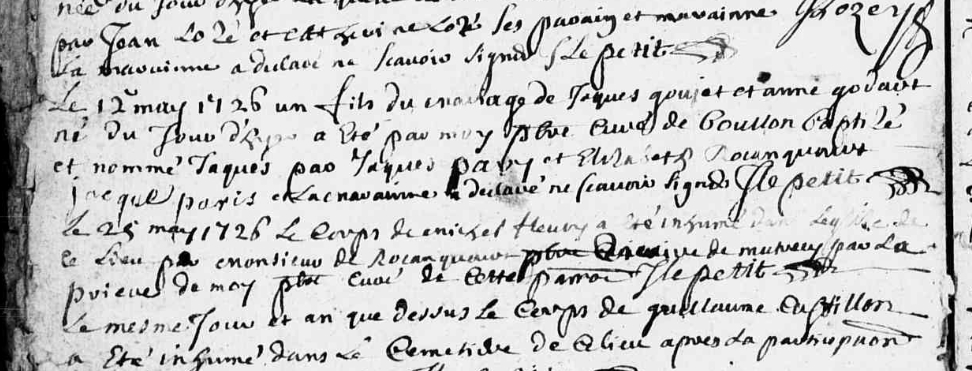 né du Jour d'hyer
par Jean Lozé et Catherine Lozé ses parain et maraine
La maraine a declaré ne scavoir signer J Le petit
Le 12e may 1726 un fils du mariage de Jaques goujet et anne godart
né du Jour d'hyer a Eté par moy pbre Curé de boullon baptizé
et nommé Jaques par Jaques pary et Elizabeth Rocanquourt
Jacque paris et La maraine a declaré ne scavoir signer J le petit
Le 25 may 1726 Le Corps de michel fleury a eté inhumé dans L'eglise de
ce Lieu par monsieur de Rocanquourt pbre de mutrecy par La
priere de moy pbre Curé de Cette J le petit
Le mesme Jour et an que dessus Le Corps de guillaume Castillon
a Eté inhumé dans Le Cemetiere de Celieu apres La participation